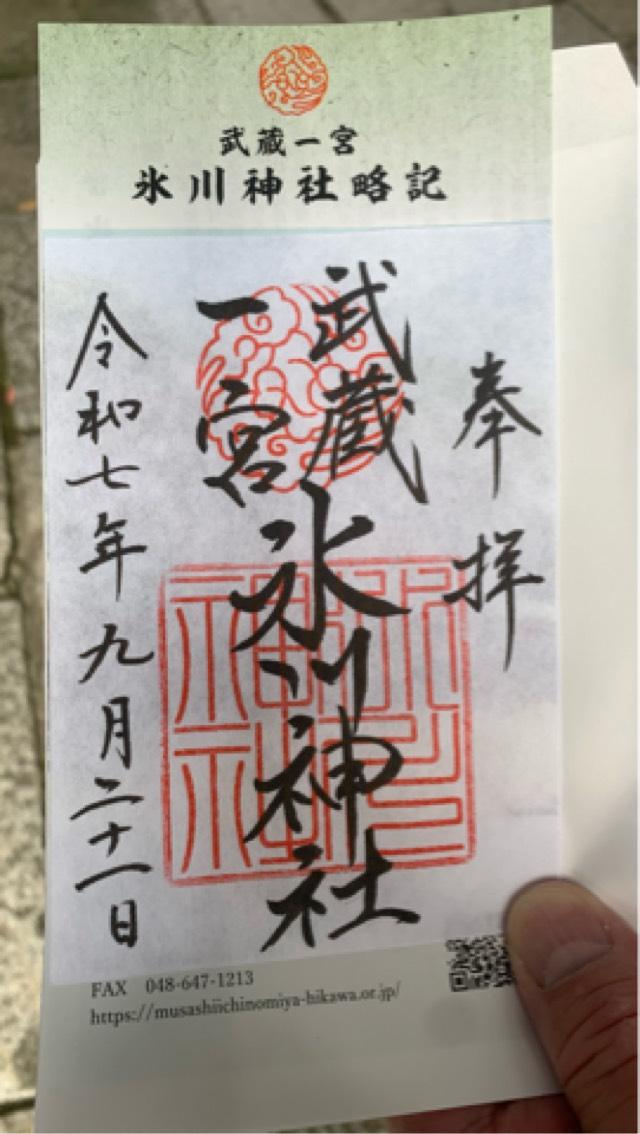 武蔵一宮
氷川神社略記
奉拝
武蔵
一宮
氷川神社
令和七年九月二十一日
氷川
神社
FAX 048-647-1213
https://musashiichinomiya-hikawa.or.jp/